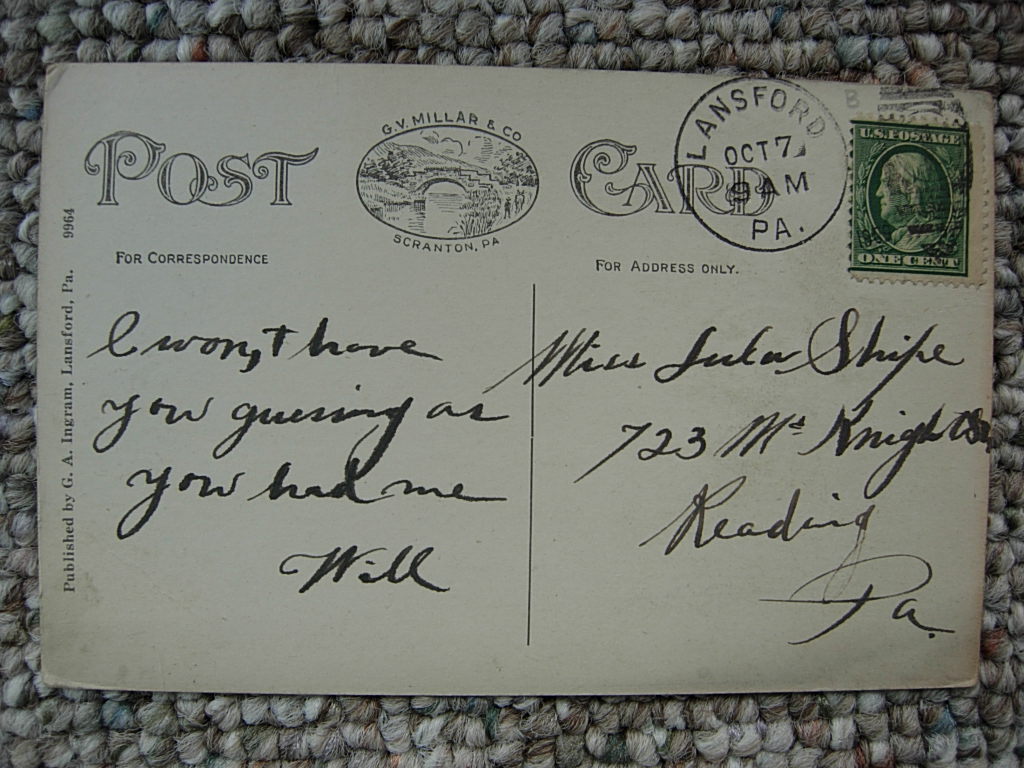 POST CARD
G.V. MILLAR & CO
SCRANTON, PA
LANSFORD
OCT 7
9 AM
PA.
B
U.S. POSTAGE
ONE CENT
FOR CORRESPONDENCE
FOR ADDRESS ONLY.
Published by G. A. Ingram, Lansford, Pa. 9964
I won,t have
you guessing as
you had me
Will
Miss Lula Shipe
723 Mc Knight St
Reading
Pa.